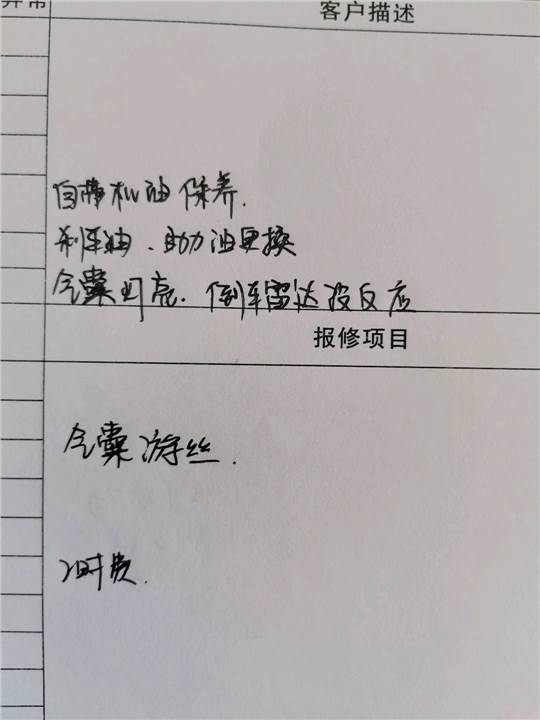 异常
客户描述
自带机油保养.
刹车油、助力油更换
气囊灯亮. 倒车雷达没反应
报修项目
气囊游丝.